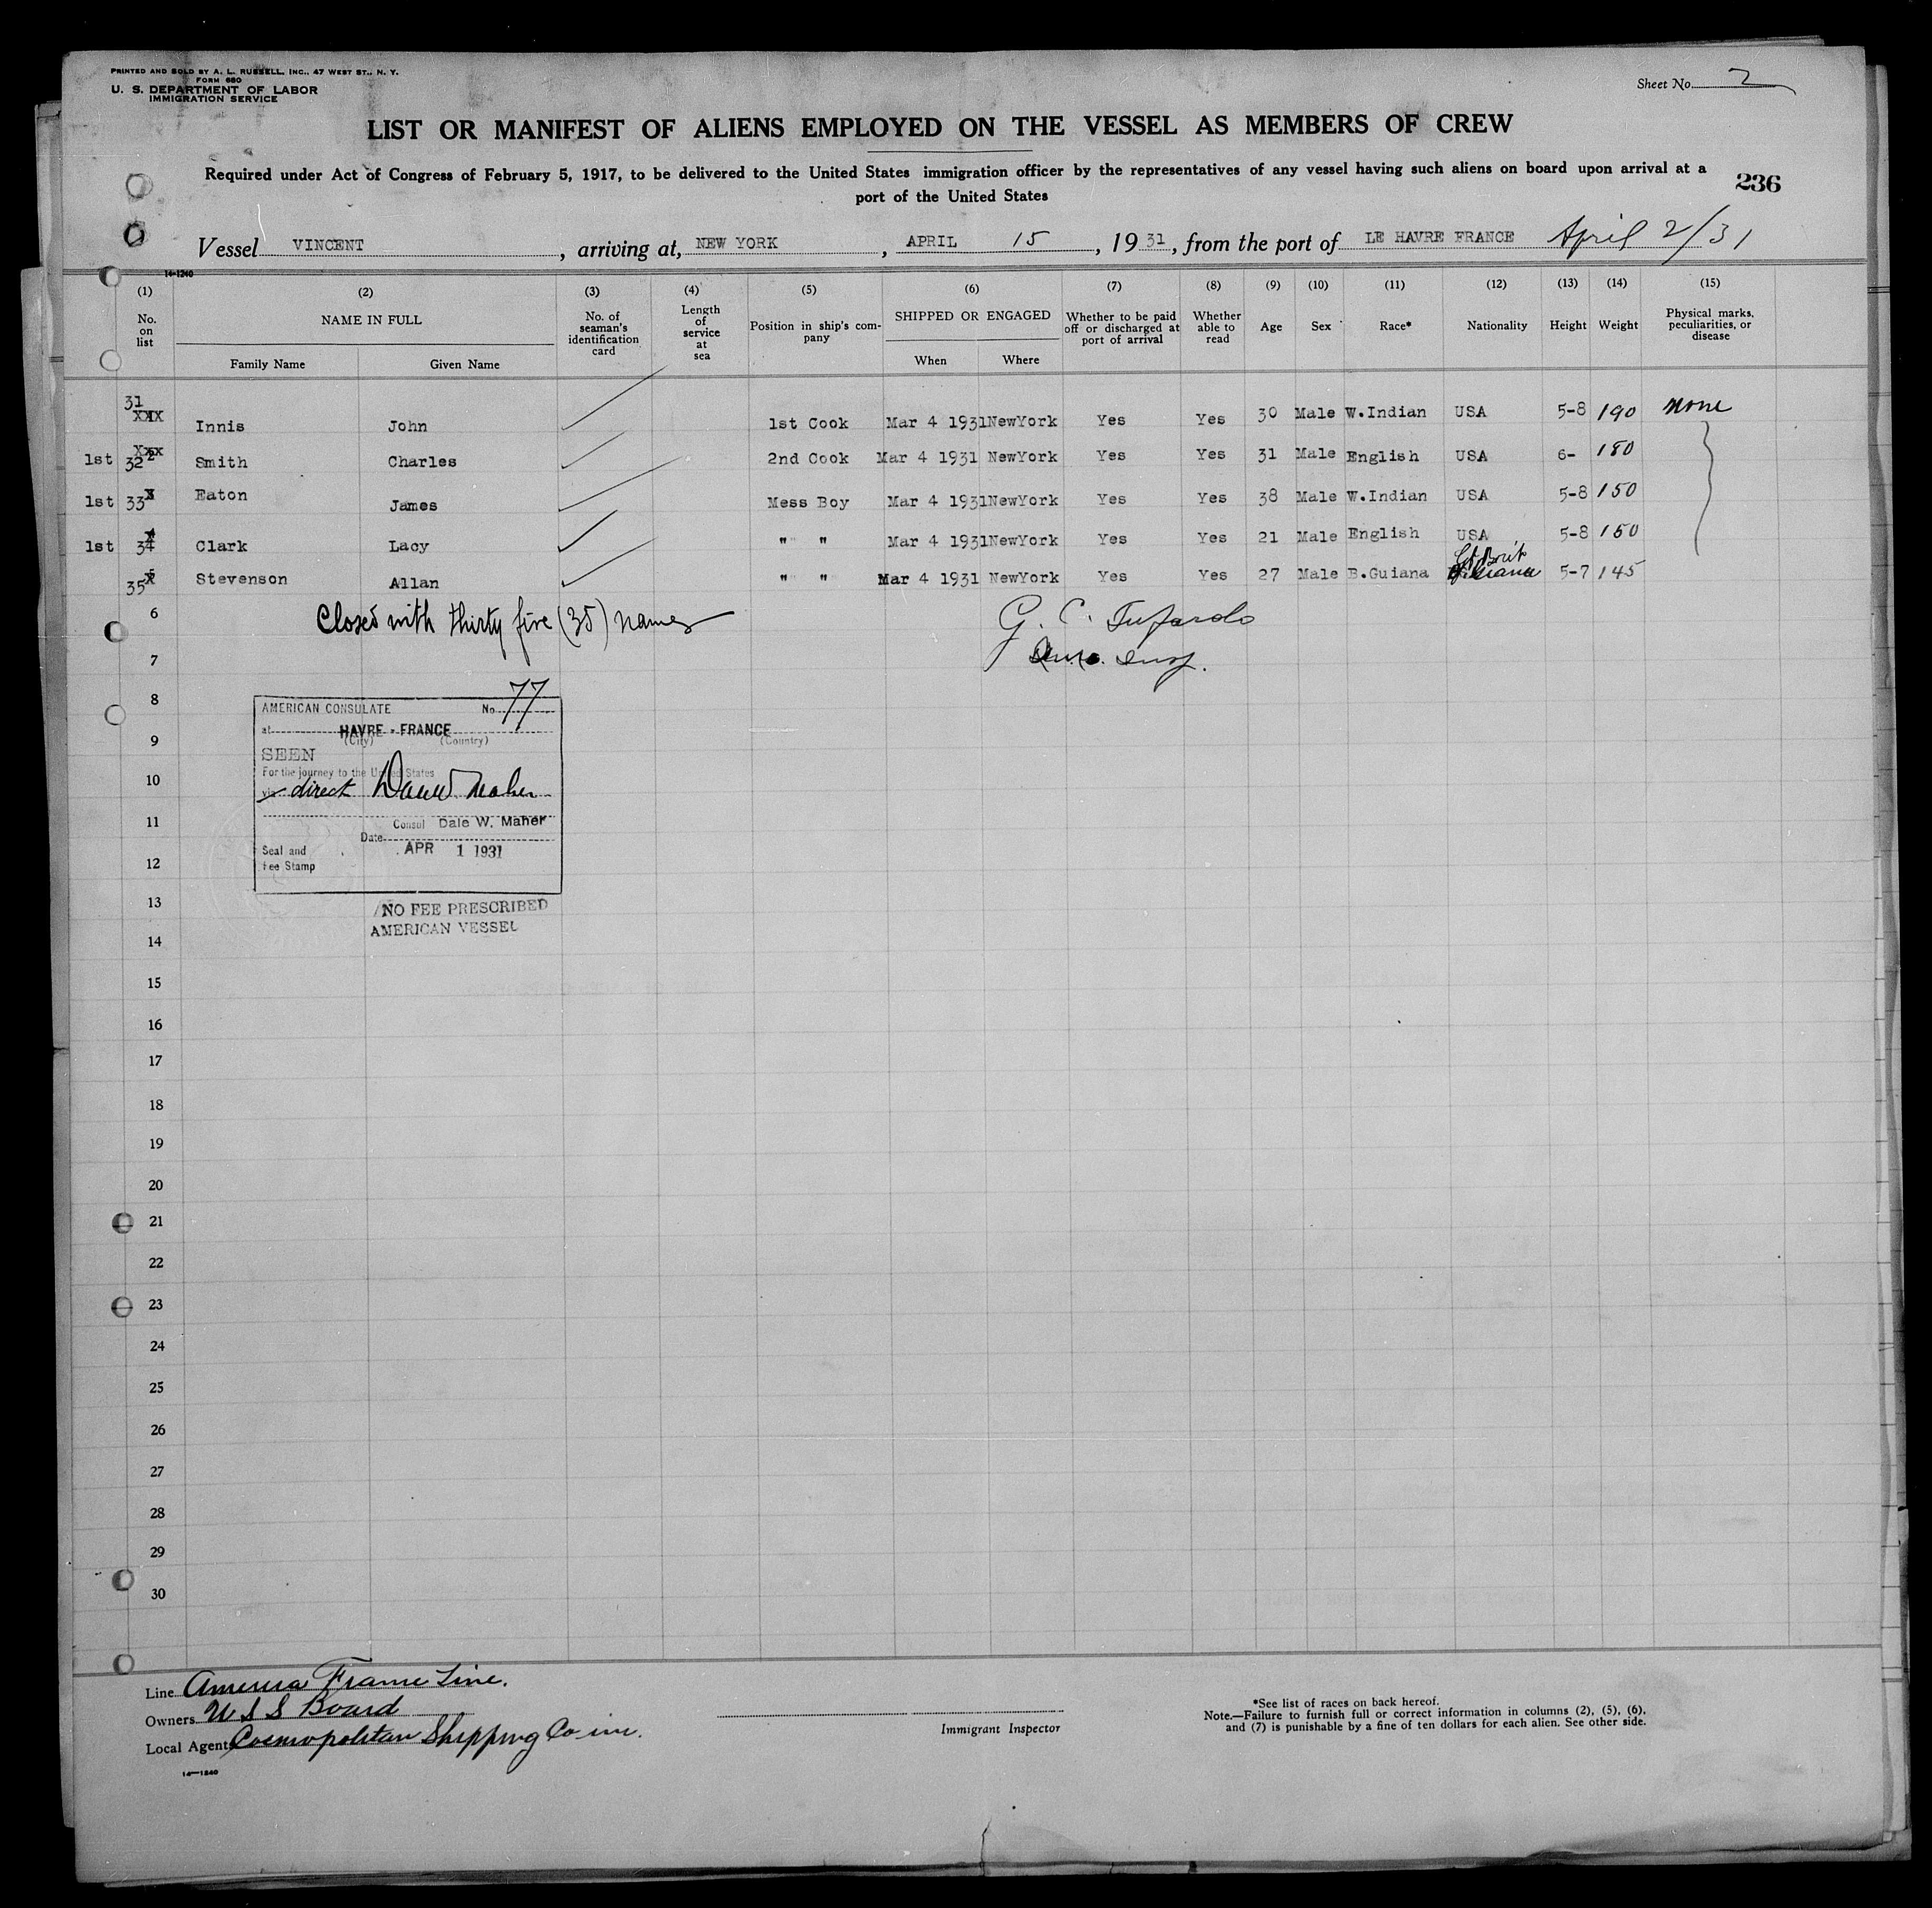 PRINTED AND SOLD BY A. L. RUSSELL, INC., 47 WEST ST., N. Y.
FORM 680
U. S. DEPARTMENT OF LABOR
IMMIGRATION SERVICE
Sheet No. 2
LIST OR MANIFEST OF ALIENS EMPLOYED ON THE VESSEL AS MEMBERS OF CREW
Required under Act of Congress of February 5, 1917, to be delivered to the United States immigration officer by the representatives of any vessel having such aliens on board upon arrival at a
port of the United States
236
Vessel VINCENT, arriving at, NEW YORK, APRIL 15, 1931, from the port of LE HAVRE FRANCE April 2/31
14-1240
(1) (2) (3) (4) (5) (6) (7) (8) (9) (10) (11) (12) (13) (14) (15)
No. on list
NAME IN FULL
Family Name Given Name
No. of seaman's identification card
Length of service at sea
Position in ship's company
SHIPPED OR ENGAGED
When Where
Whether to be paid off or discharged at port of arrival
Whether able to read
Age
Sex
Race*
Nationality
Height
Weight
Physical marks, peculiarities, or disease
31 Innis John 1st Cook Mar 4 1931 NewYork Yes Yes 30 Male W.Indian USA 5-8 190 none
1st 32 Smith Charles 2nd Cook Mar 4 1931 NewYork Yes Yes 31 Male English USA 6- 180
1st 33 Eaton James Mess Boy Mar 4 1931 NewYork Yes Yes 38 Male W.Indian USA 5-8 150
1st 34 Clark Lacy " " Mar 4 1931 NewYork Yes Yes 21 Male English USA 5-8 150
35 Stevenson Allan " " Mar 4 1931 NewYork Yes Yes 27 Male B.Guiana Gt Brit 5-7 145
6 Closed with thirty five (35) names G. C.
7
8
9
10
11
12
13
14
15
16
17
18
19
20
21
22
23
24
25
26
27
28
29
30
AMERICAN CONSULATE No. 77
at HAVRE - FRANCE
(City) (Country)
SEEN
For the journey to the United States
via direct
Consul Dale W. Maher
Date APR 1 1931
Seal and
Fee Stamp
NO FEE PRESCRIBED
AMERICAN VESSEL
Line America France Line.
Owners U S S Board
Local Agents Cosmopolitan Shipping Co inc.
14-1240
Immigrant Inspector
*See list of races on back hereof.
Note.—Failure to furnish full or correct information in columns (2), (5), (6),
and (7) is punishable by a fine of ten dollars for each alien. See other side.